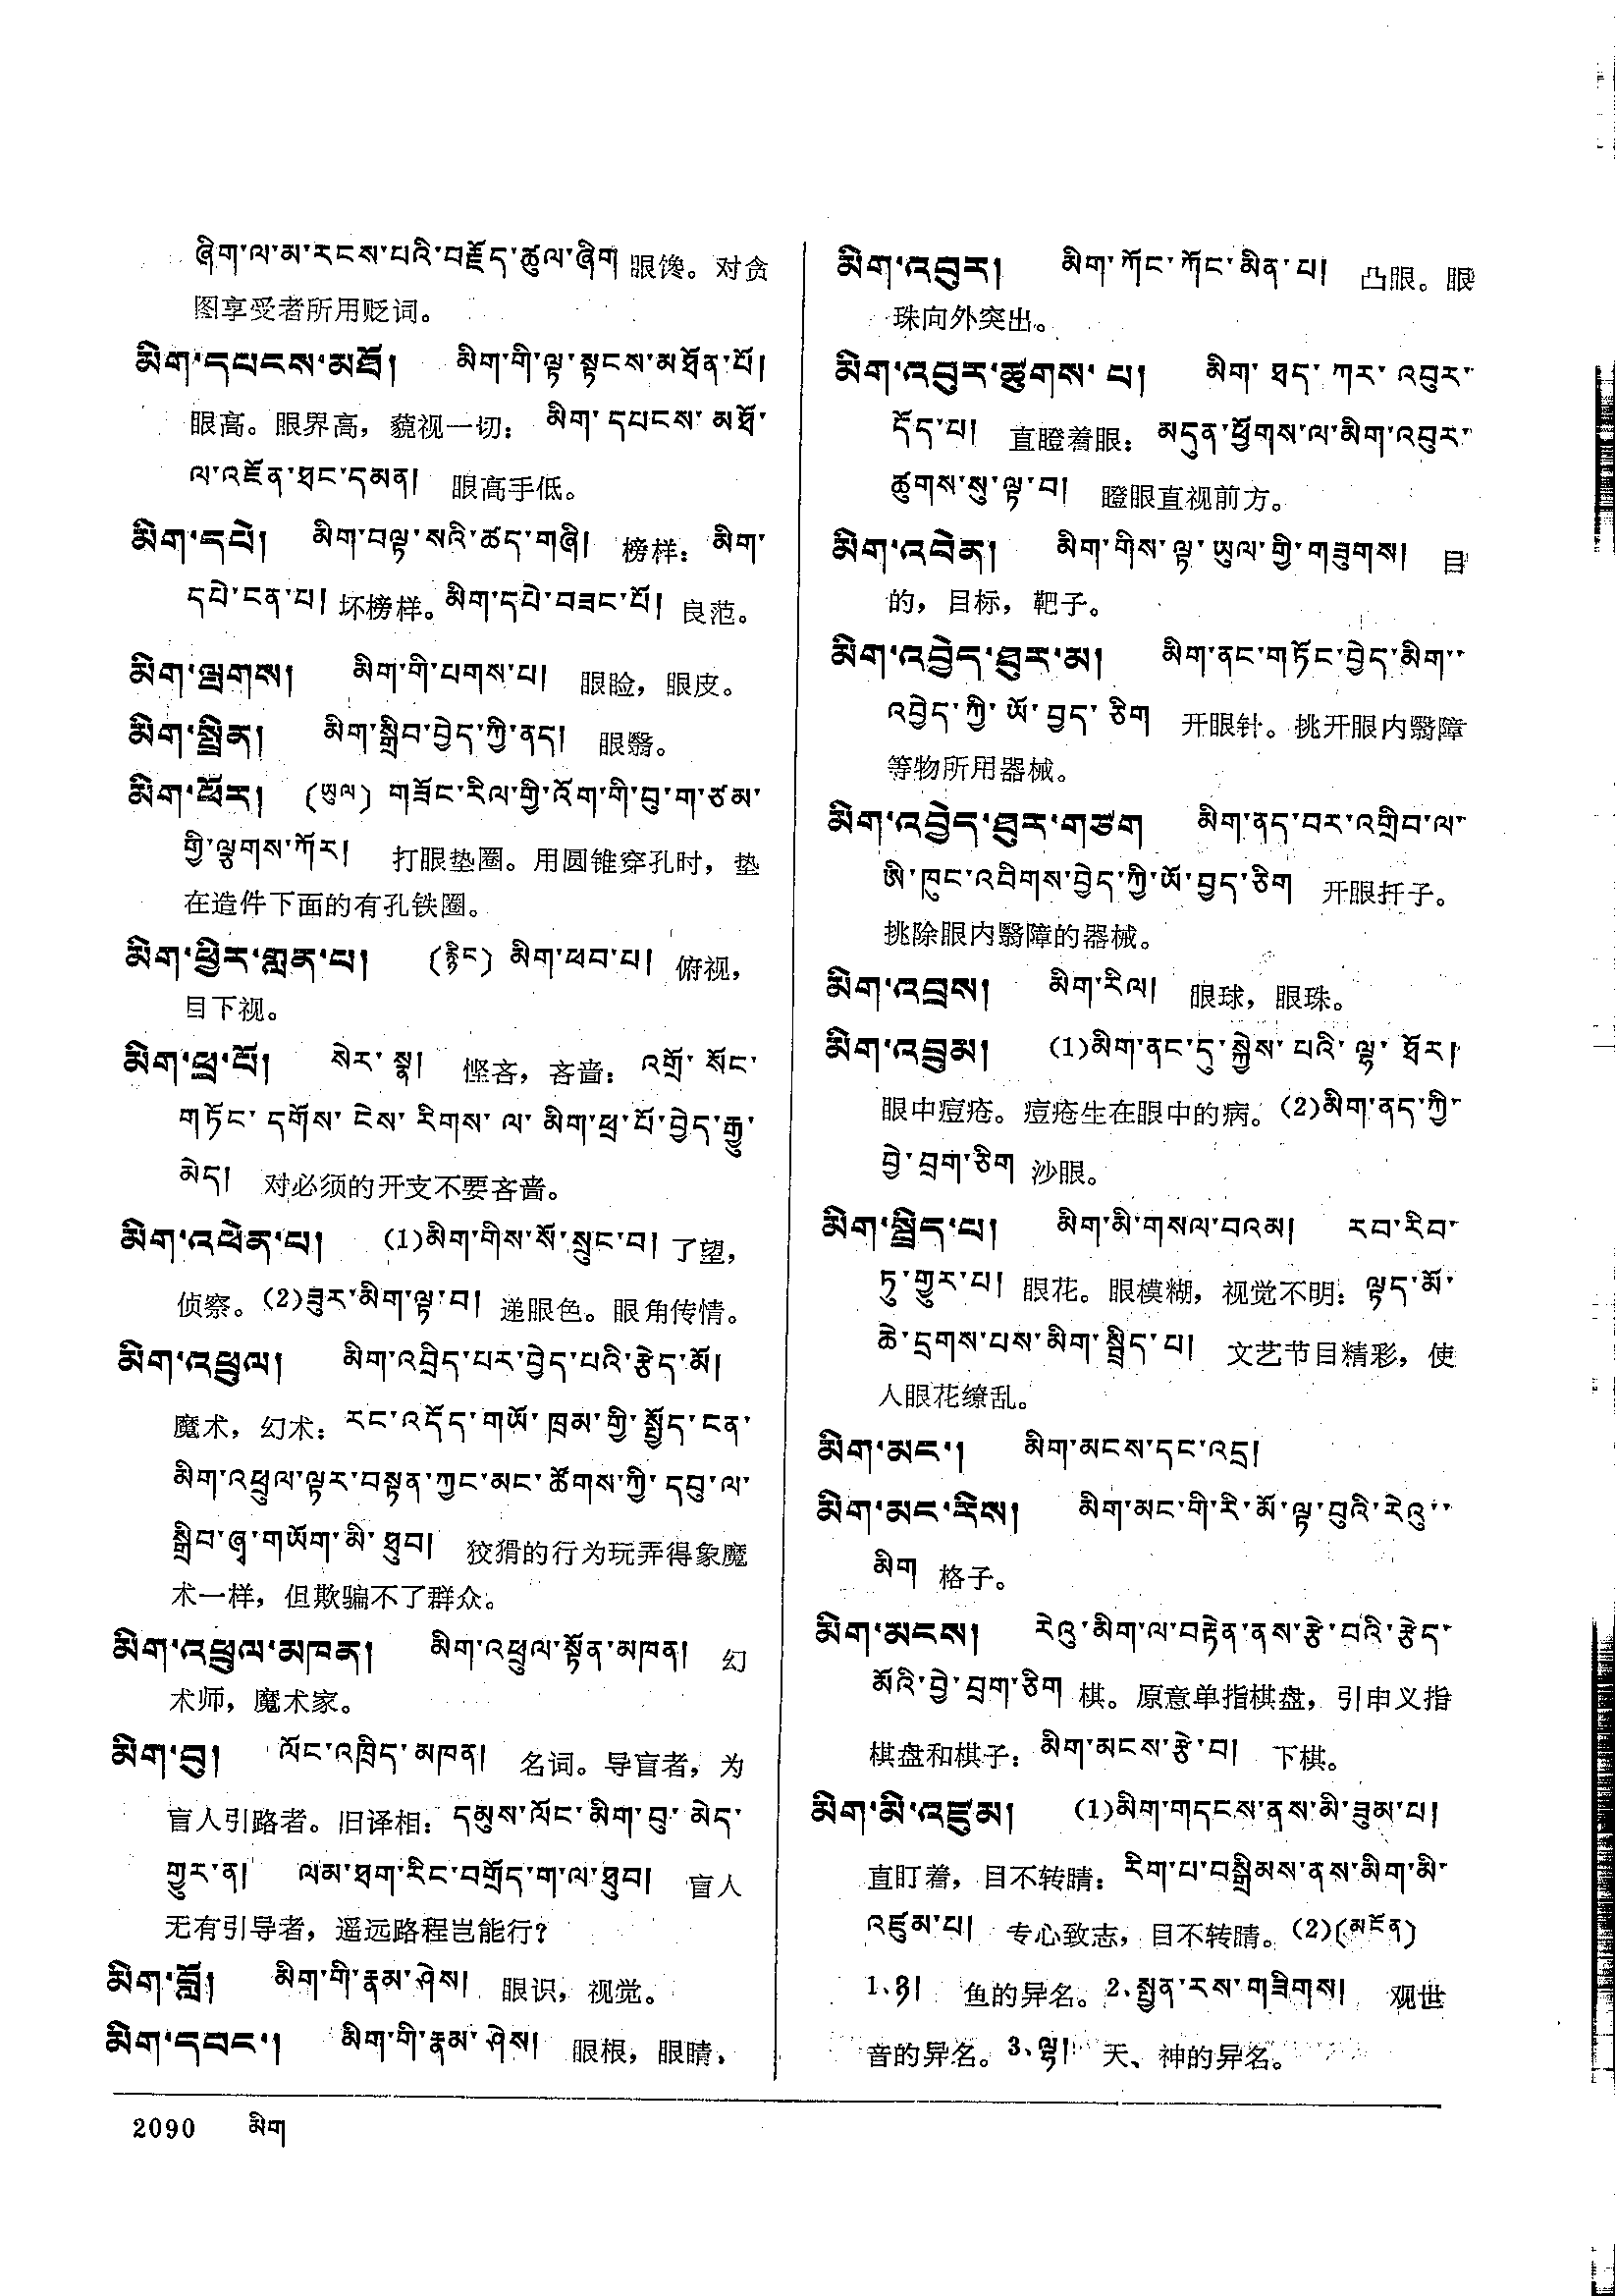 ཞིག་ལ་མ་རངས་པའི་བརྗོད་ཚུལ་ཞིག 眼馋。对贪
图享受者所用贬词。
མིག་དཔངས་མཐོ། མིག་གི་ལྟ་སྟངས་མཐོན་པོ།
眼高。眼界高，藐视一切： མིག་དཔངས་མཐོ་
ལ་འཇོན་ཐང་དམན། 眼高手低。
མིག་དཔེ། མིག་བལྟ་སའི་ཚད་གཞི། 榜样：མིག་
དཔེ་ངན་པ། 坏榜样。མིག་དཔེ་བཟང་པོ། 良范。
མིག་ལྤགས། མིག་གི་པགས་པ། 眼睑，眼皮。
མིག་སྤྲིན། མིག་སྒྲིབ་བྱེད་ཀྱི་ནད། 眼翳。
མིག་ཕོར། (ཡུལ) གཟོང་རིལ་གྱི་འོག་གི་བུ་ག་ཙམ་
གྱི་ལྕགས་ཀོར། 打眼垫圈。用圆锥穿孔时，垫
在造件下面的有孔铁圈。
མིག་ཕྱིར་གླན་པ། (རྙིང) མིག་ཕབ་པ། 俯视，
目下视。
མིག་ཕྲ་པོ། སེར་སྣ། 悭吝，吝啬：འགྲོ་སོང་
གཏོང་དགོས་ངེས་རིགས་ལ་མིག་ཕྲ་པོ་བྱེད་རྒྱུ་
མེད། 对必须的开支不要吝啬。
མིག་འཕེན་པ། (1)མིག་གིས་སོ་སྲུང་བ། 了望，
侦察。(2)ཟུར་མིག་ལྟ་བ། 递眼色。眼角传情。
མིག་འཕྲུལ། མིག་འབྲིད་པར་བྱེད་པའི་རྩེད་མོ།
魔术，幻术：རང་འདོད་གཡོ་ཁྲམ་གྱི་སྤྱོད་ངན་
མིག་འཕྲུལ་ལྟར་བསྟན་ཀྱང་མང་ཚོགས་ཀྱི་དབུ་ལ་
སྒྲིབ་ཞྭ་གཡོག་མི་ཐུབ། 狡猾的行为玩弄得象魔
术一样，但欺骗不了群众。
མིག་འཕྲུལ་མཁན། མིག་འཕྲུལ་སྟོན་མཁན། 幻
术师，魔术家。
མིག་བུ། ལོང་འཁྲིད་མཁན། 名词。导盲者，为
盲人引路者。旧译相：དམུས་ལོང་མིག་བུ་མེད་
གྱུར་ན། ལམ་ཐག་རིང་བགྲོད་ག་ལ་ཐུབ། 盲人
无有引导者，遥远路程岂能行?
མིག་བློ། མིག་གི་རྣམ་ཤེས། 眼识，视觉。
མིག་དབང་། མིག་གི་རྣམ་ཤེས། 眼根，眼睛，
མིག་འབུར། མིག་ཀོང་ཀོང་མིན་པ། 凸眼。眼
珠向外突出。
མིག་འབུར་ཚུགས་པ། མིག་ཐད་ཀར་འབུར་
དོད་པ། 直瞪着眼：མདུན་ཕྱོགས་ལ་མིག་འབུར་
ཚུགས་སུ་ལྟ་བ། 瞪眼直视前方。
མིག་འབེན། མིག་གིས་ལྟ་ཡུལ་གྱི་གཟུགས། 目
的，目标，靶子。
མིག་འབྱེད་ཐུར་མ། མིག་ནང་གཏོང་བྱེད་མིག་
འབྱེད་ཀྱི་ཡོ་བྱད་ཅིག 开眼针。挑开眼内翳障
等物所用器械。
མིག་འབྱེད་ཐུར་གཙག མིག་ནད་བར་འགྲིབ་ལ་
ཨི་ཁུང་འབིགས་བྱེད་ཀྱི་ཡོ་བྱད་ཅིག 开眼扦子。
挑除眼内翳障的器械。
མིག་འབྲས། མིག་རིལ། 眼球，眼珠。
མིག་འབྲུམ། (1)མིག་ནང་དུ་སྐྱེས་པའི་ལྷ་ཐོར།
眼中痘疮。痘疮生在眼中的病。(2)མིག་ནད་ཀྱི་
བྱེ་བྲག་ཅིག 沙眼。
མིག་སྦྲིད་པ། མིག་མི་གསལ་བའམ། རབ་རིབ་
ཏུ་གྱུར་པ། 眼花。眼模糊，视觉不明：ལྟད་མོ་
ཆེ་དྲགས་པས་མིག་སྦྲིད་པ། 文艺节目精彩，使
人眼花缭乱。
མིག་མང་། མིག་མངས་དང་འདྲ།
མིག་མང་རིས། མིག་མང་གི་རི་མོ་ལྟ་བུའི་རེའུ་
མིག 格子。
མིག་མངས། རེའུ་མིག་ལ་བརྟེན་ནས་རྩེ་བའི་རྩེད་
མོའི་བྱེ་བྲག་ཅིག 棋。原意单指棋盘，引申义指
棋盘和棋子：མིག་མངས་རྩེ་བ། 下棋。
མིག་མི་འཛུམ། (1)མིག་གདངས་ནས་མི་ཟུམ་པ།
直盯着，目不转睛：རིག་པ་བསྒྲིམས་ནས་མིག་མི་
འཛུམ་པ། 专心致志，目不转睛。(2)(མངོན)
1、ཉ། 鱼的异名。2、སྤྱན་རས་གཟིགས། 观世
音的异名。3、ལྷ། 天、神的异名。
2090 མིག